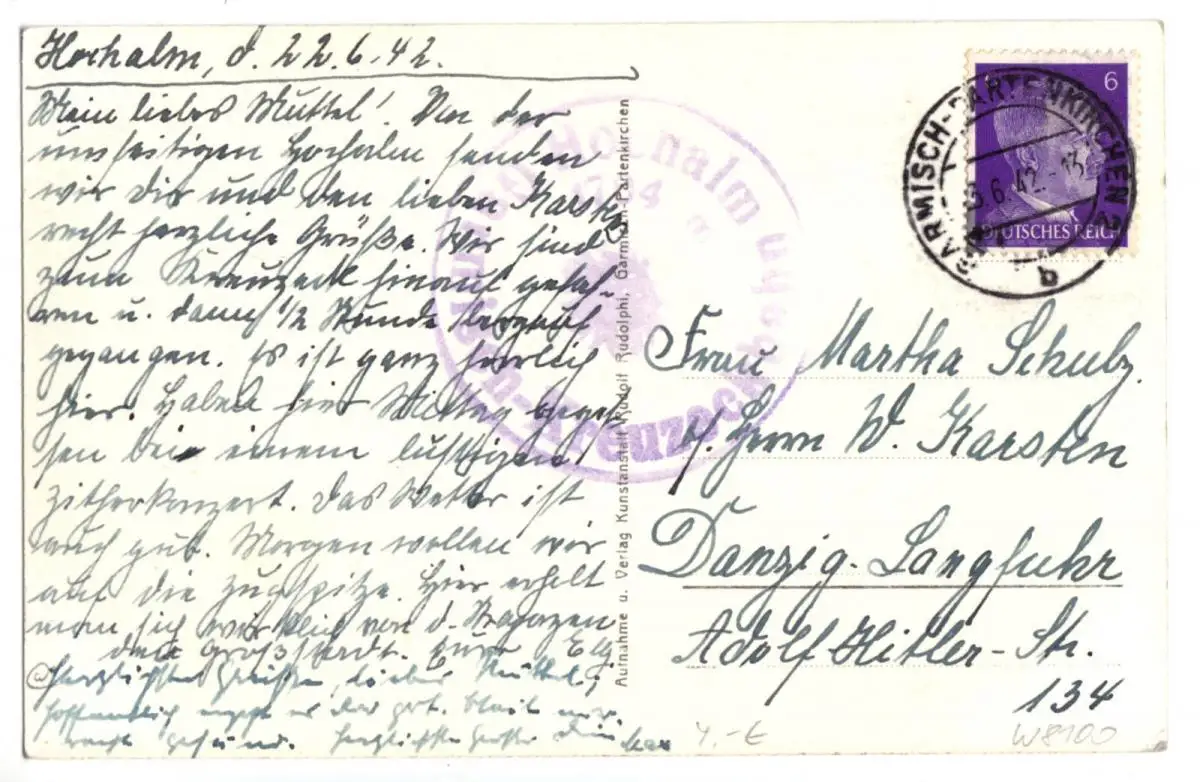 Hochalm, d. 22.6.42.
Mein liebes Muttel! Von der
umseitigen Hochalm senden
wir Dir und den lieben Karsten
recht herzliche Grüße. Wir sind
zum Kreuzeck hinauf gefah-
ren u. dann 1/2 Stunde bergauf
gegangen. Es ist ganz herrlich
hier. Haben hier Mittag geges-
sen bei einem lustigen
Zitherkonzert. Das Wetter ist
auch gut. Morgen wollen wir
auf die Zugspitze. Hier erholt
man sich wirklich von d. Strapazen
der Großstadt. Eure Elly
Herzlichste Grüße, liebes Muttel,
hoffentlich geht es Dir gut. bleib nur
recht gesund. Herzlichste Grüße Dein
Hochalm
1704 m
Kreuzeck
Aufnahme u. Verlag Kunstanstalt Rudolf Rudolphi, Garmisch-Partenkirchen
6
DEUTSCHES REICH
GARMISCH-PARTENKIRCHEN 2
23.6.42.-13
b
Frau Martha Schulz.
b/ Herrn W. Karsten
Danzig-Langfuhr
Adolf Hitler-Str.
134
4.-€
W8100